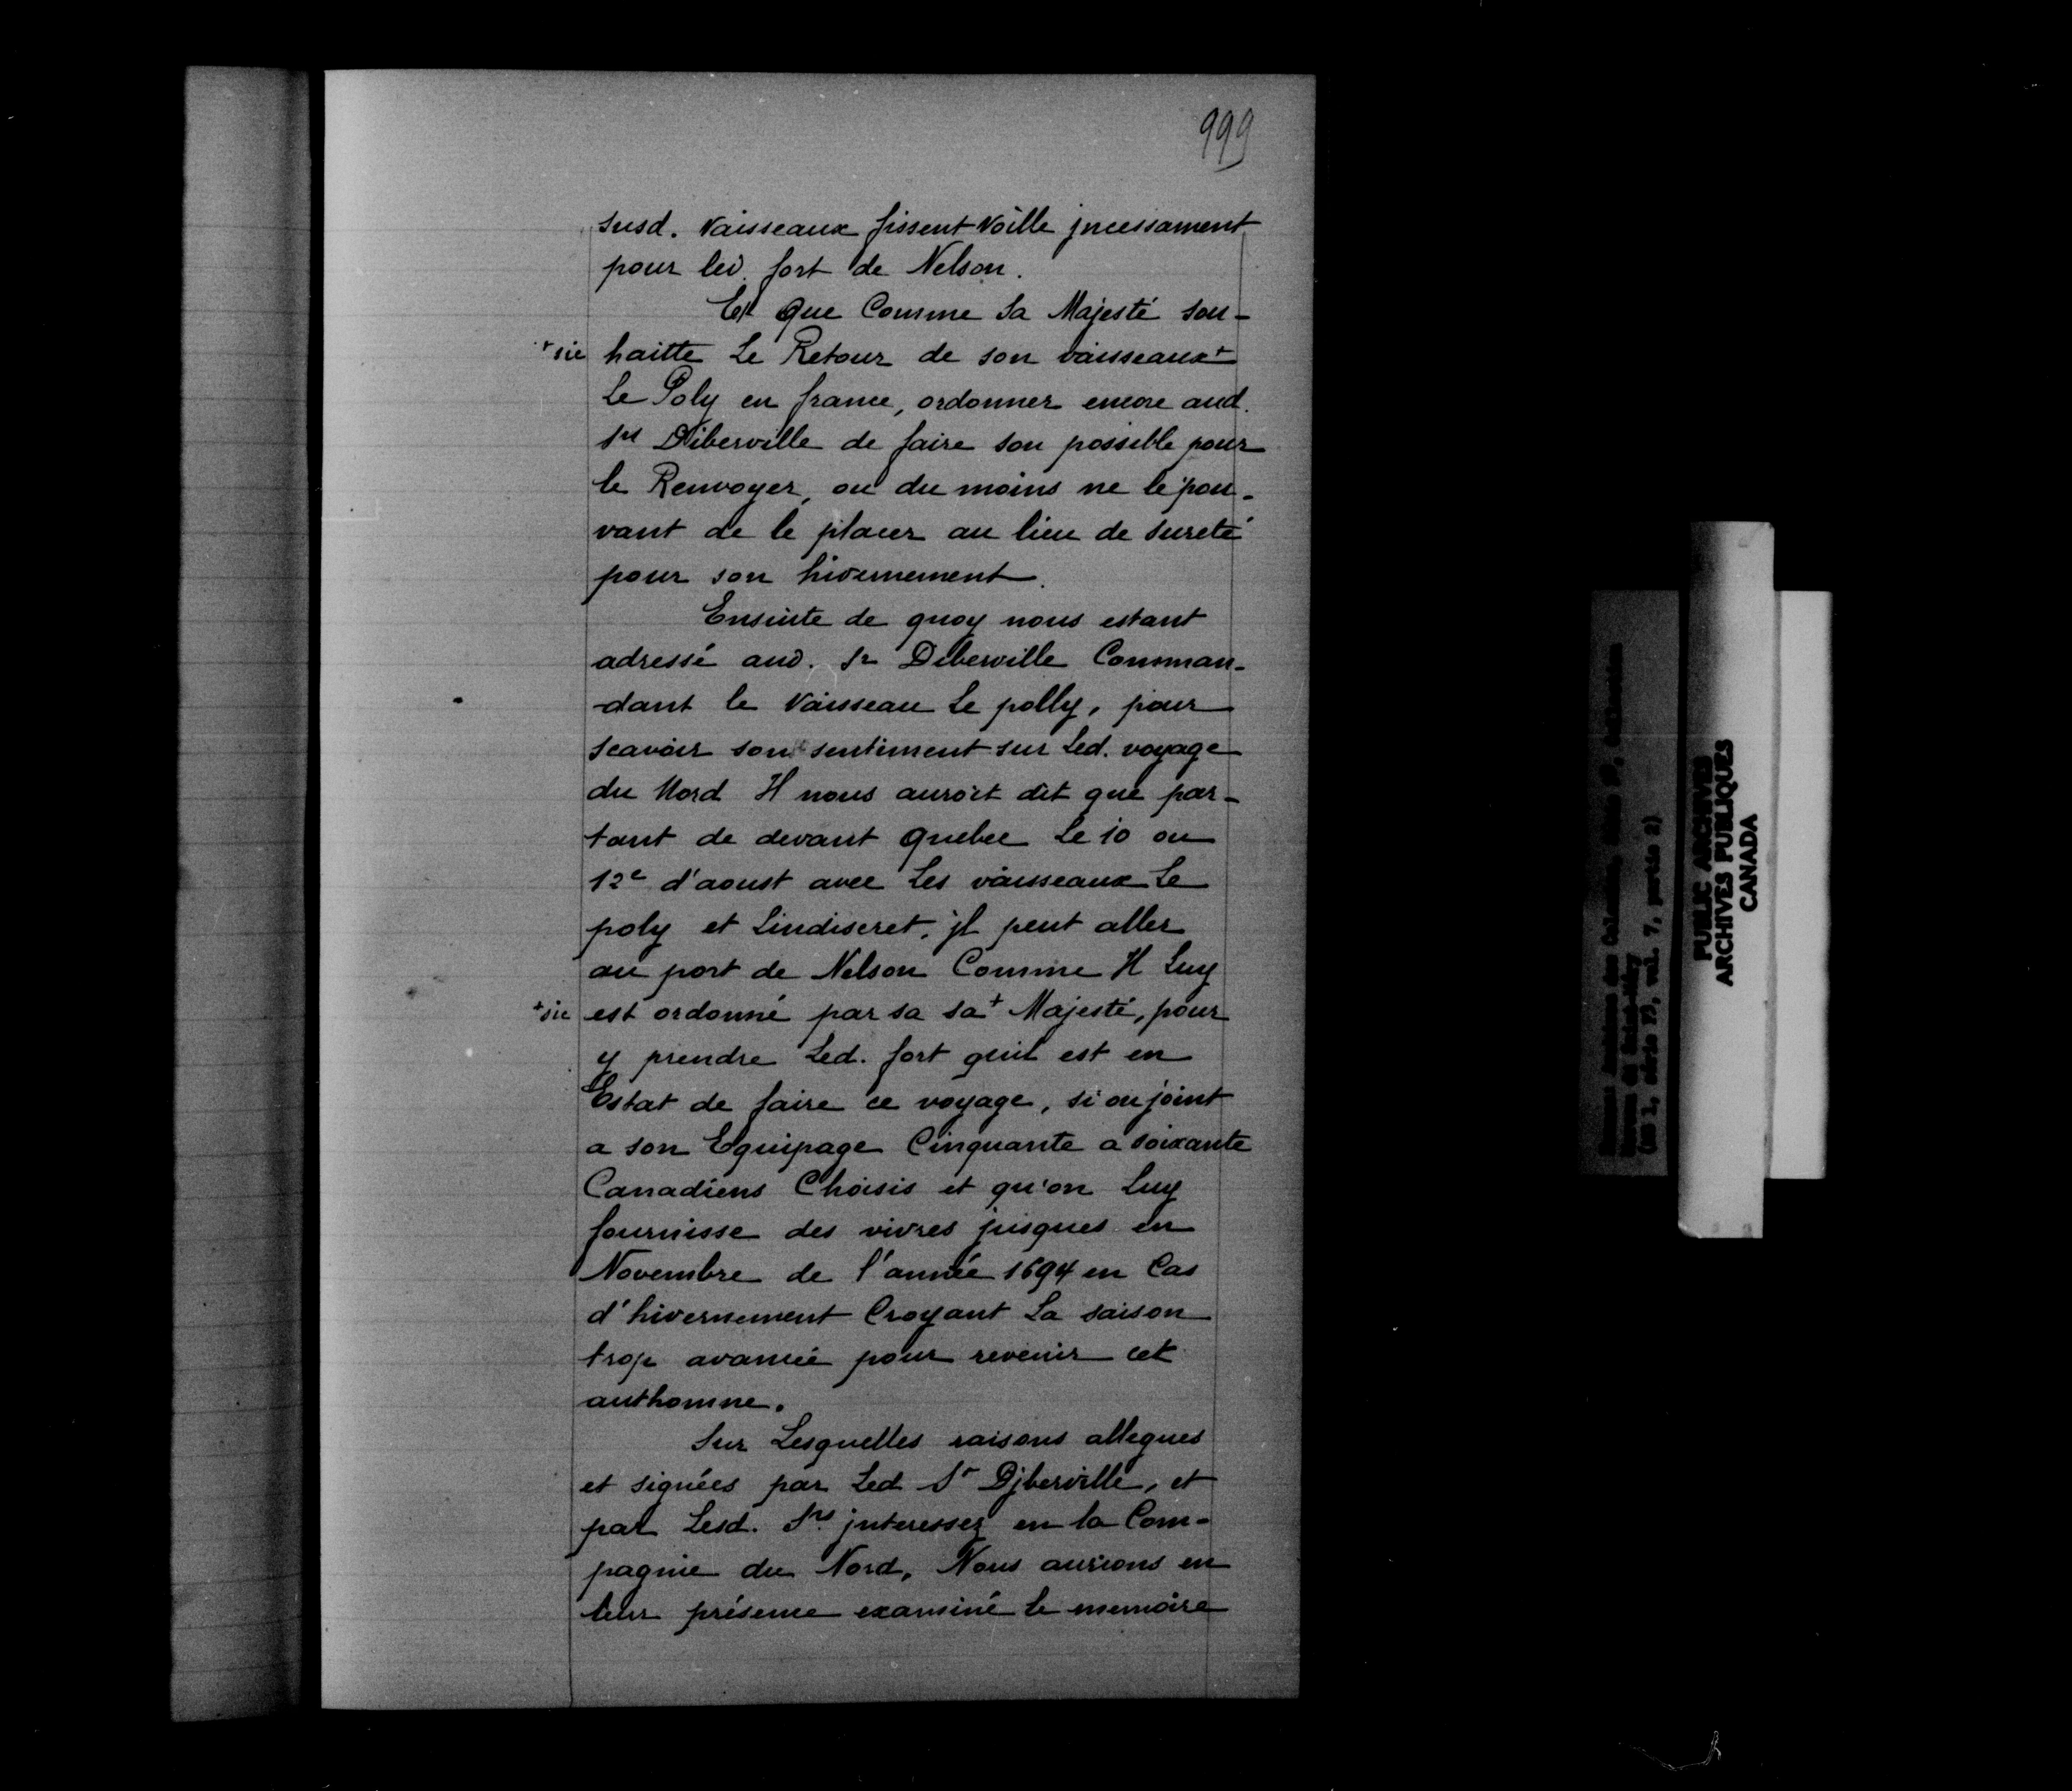 999
susd. Vaisseaux fissent Voille jncessament
pour led. fort de Nelson.
Et que Comme Sa Majesté sou-
+sic haitte Le Retour de son vaisseaux+
Le Poly en france, ordonner encore aud.
Sr Diberville de faire son possible pour
le Renvoyer, ou du moins ne le pou-
vant de le placer au lieu de sureté
pour son hivernement.
Ensuite de quoy nous estant
adressé aud. Sr Diberville Comman-
-dant le Vaisseau Le polly, pour
scavoir son sentiment sur Led. voyage
du Nord Il nous auroit dit que par-
tant de devant Quebec Le 10 ou
12e d'aoust avec Les vaisseaux Le
poly et Lindiscret, jl peut aller
au port de Nelson Comme Il Luy
+sic est ordonné par sa sa+ Majesté, pour
y prendre Led. fort quil est en
Estat de faire ce voyage, si on joint
a son Equipage Cinquante a soixante
Canadiens Choisis et qu'on Luy
fournisse des vivres jusques en
Novembre de l'année 1694 en Cas
d'hivernement Croyant La saison
trop avancée pour revenir cet
authomne.
Sur Lesquelles raisons allegues
et signées par Led Sr Djberville, et
par Lesd. Srs jnteressez en la Com-
pagnie du Nord, Nous aurions en
leur présence examiné le memoire
PUBLIC ARCHIVES
ARCHIVES PUBLIQUES
CANADA
(MG 1, série F3, vol. 7, partie 2)